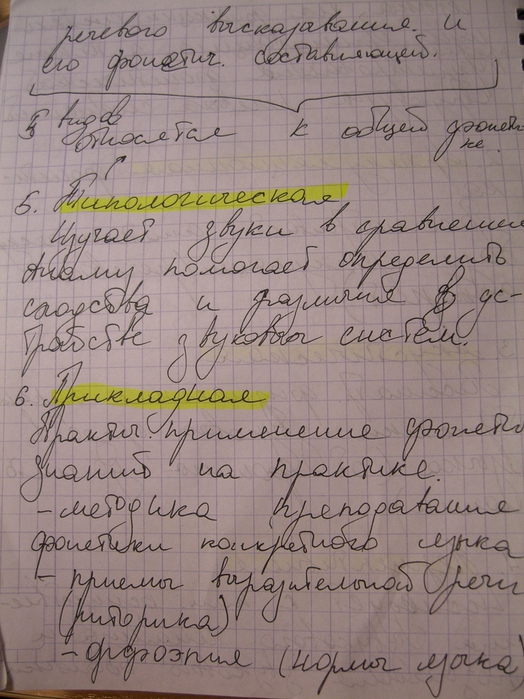 речевого высказывания. и
его фонетич. составляющей.
5 видов
относятся к общей фонети-
ке.
5. Типологическая
Изучает звуки в сравнении
Анализ помогает определить
сходства и различия в ус-
тройстве звуковых систем.
6. Прикладная
Практич. применение фонетич
знаний на практике.
- методика преподавания
фонетики конкретного языка
- приемы выразительной речи
(риторика)
- орфоэпия (нормы языка)